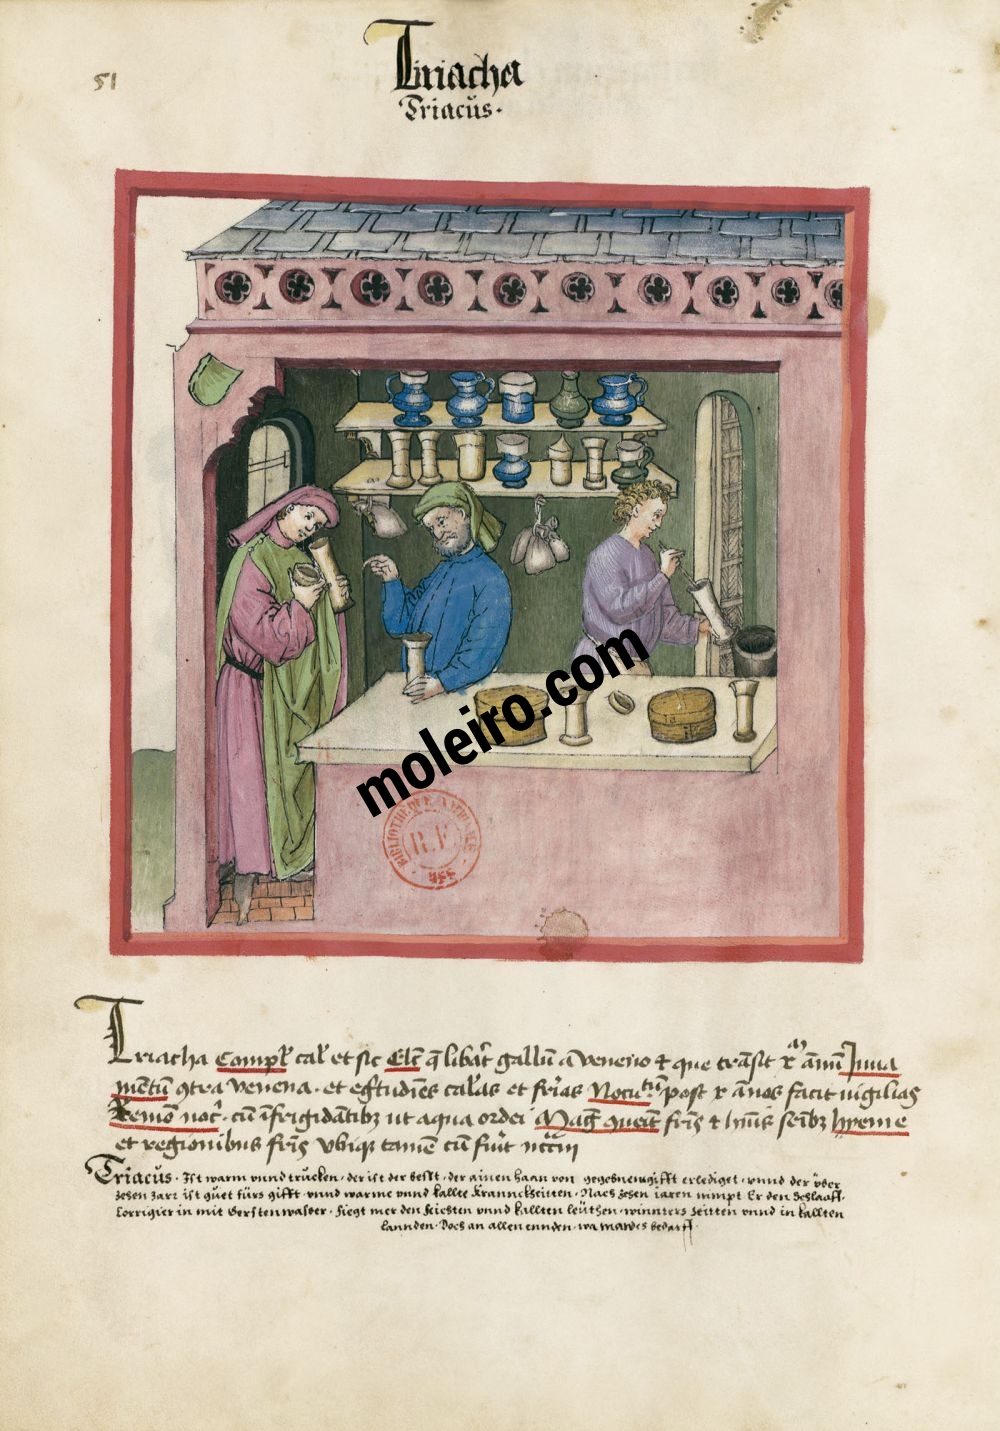 51
Tiriacha
Triacüs.
moleiro.com
BIBLIOTHEQUE NATIONALE
R.F.
MSS
Tiriacha Compl̄ cal̄ et sic Elc̄ q̄ libāt gallū a veneno ⁊ que trāsit x ānū Juua
mētū ɔtra venena. et egr̄tudīes cal̄as et fr̄ias Nocu post x ānos facit uigilias
Remō noc̄. cū īfrigidātibꝫ ut aqua ordei fr̄is ⁊ sēibꝫ hyeme
et regionibus fr̄is vbiqꝫ tamē cū fūit
Triacüs. Ist warm vnnd trucken. der ist der besst. der ainen haan von gegebnem gifft erlediget. vnnd der über
zehen Jarr ist güet fürs gifft. vnnd warme vnnd kallte kranncKheitten. Nach zehen iaren nimpt Er den Schlaaff.
Corrigier in mit Gerstenwasser. fiegt mer den feichten vnnd kallten leüthen. winnters zeitten vnnd in kallten
lannden. Doch an allen ennden. wa mandes bedarff